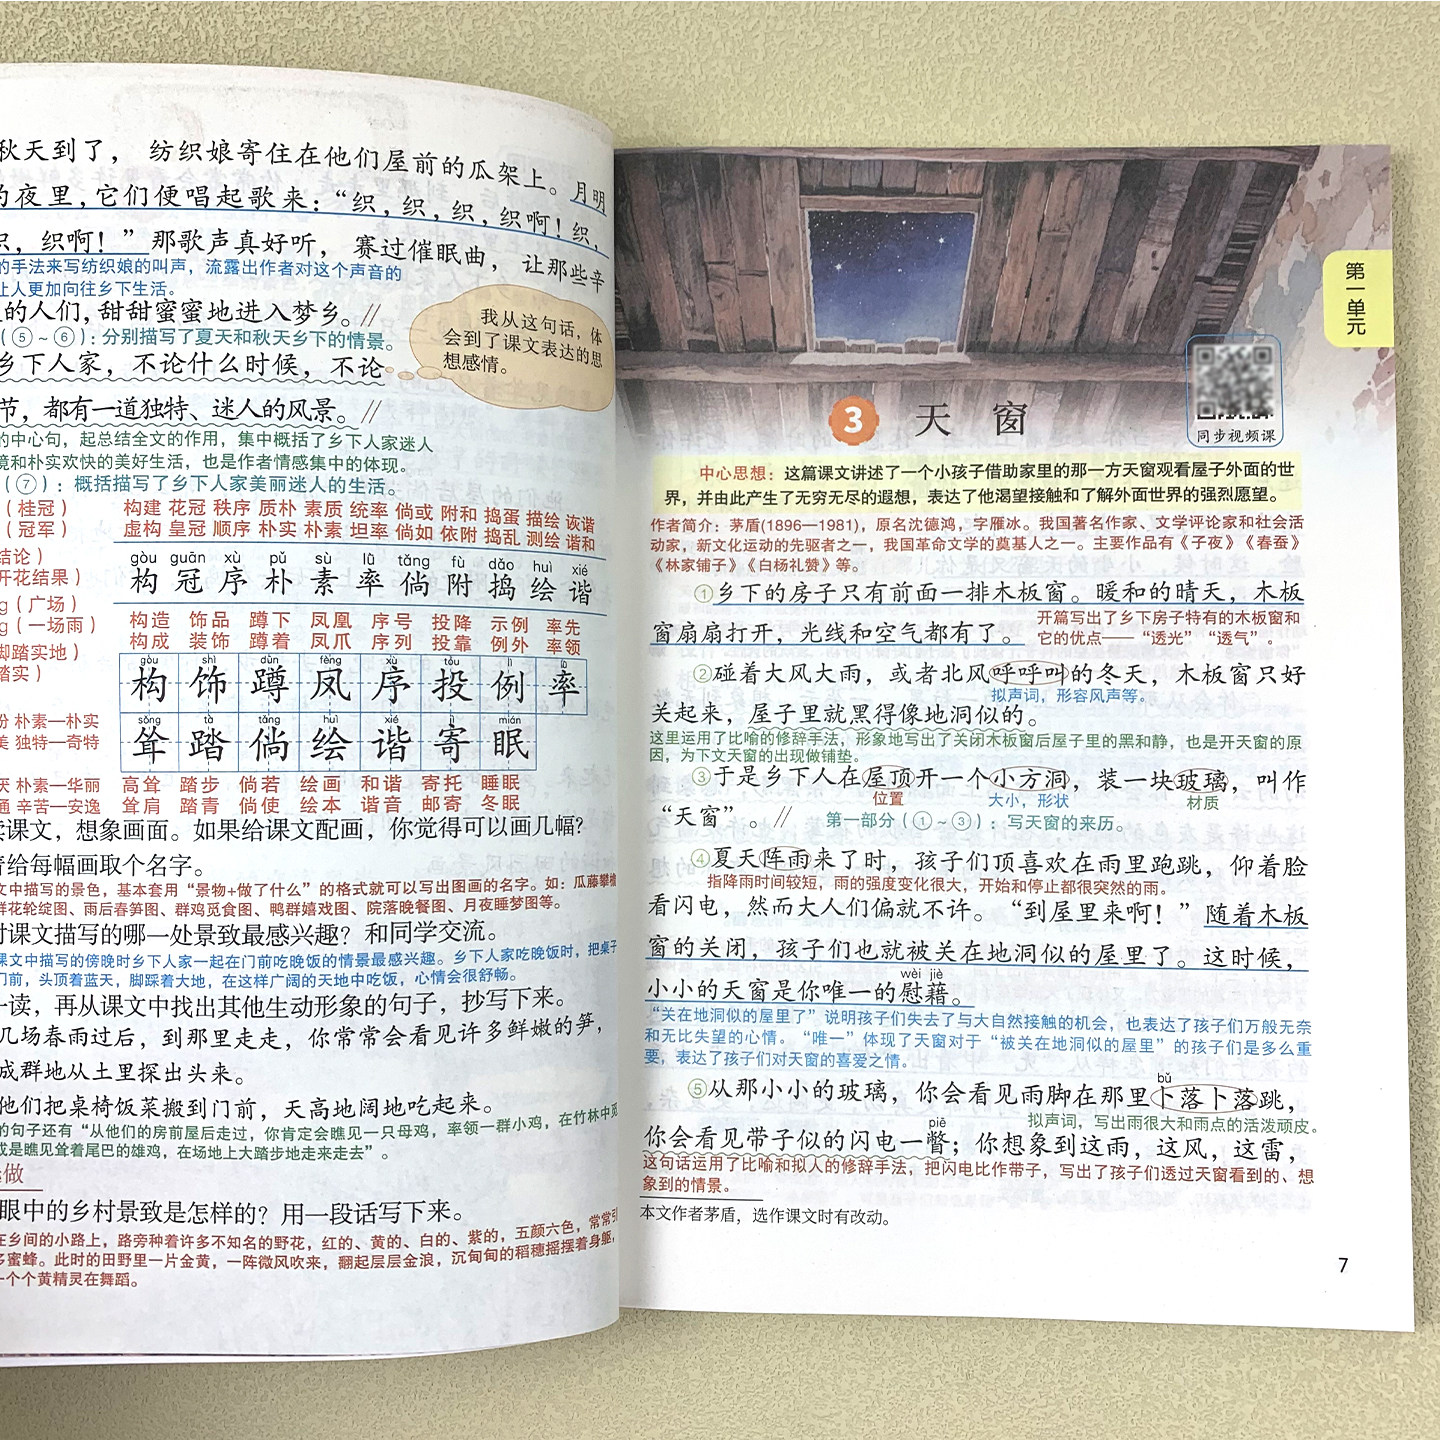 秋天到了， 纺织娘寄住在他们屋前的瓜架上。月明
的夜里，它们便唱起歌来：“织，织，织，织啊！织，
织，织啊！”那歌声真好听， 赛过催眠曲， 让那些辛
的手法来写纺织娘的叫声，流露出作者对这个声音的
让人更加向往乡下生活。
的人们，甜甜蜜蜜地进入梦乡。//
（⑤～⑥）：分别描写了夏天和秋天乡下的情景。
乡下人家，不论什么时候，不论
节，都有一道独特、迷人的风景。//
我从这句话，体
会到了课文表达的思
想感情。
的中心句，起总结全文的作用，集中概括了乡下人家迷人
境和朴实欢快的美好生活，也是作者情感集中的体现。
（⑦）：概括描写了乡下人家美丽迷人的生活。
（桂冠） 构建 花冠 秩序 质朴 素质 统率 倘或 附和 捣蛋 描绘 诙谐
（冠军） 虚构 皇冠 顺序 朴实 朴素 坦率 倘如 依附 捣乱 测绘 谐和
结论）
gòu guān xù pǔ sù lǜ tǎng fù dǎo huì xié
开花结果） 构 冠 序 朴 素 率 倘 附 捣 绘 谐
g（广场）
构造 饰品 蹲下 凤凰 序号 投降 示例 率先
g（一场雨）
构成 装饰 蹲着 凤爪 序列 投靠 例外 率领
脚踏实地）
gòu shì dūn fèng xù tóu lì lǜ
踏实）
构 饰 蹲 凤 序 投 例 率
sǒng tà tǎng huì xié jì mián
朴素—朴实
美 独特—奇特
耸 踏 倘 绘 谐 寄 眠
朴素—华丽 高耸 踏步 倘若 绘画 和谐 寄托 睡眠
通 辛苦—安逸 耸肩 踏青 倘使 绘本 谐音 邮寄 冬眠
读课文，想象画面。如果给课文配画，你觉得可以画几幅？
给每幅画取个名字。
文中描写的景色，基本套用“景物+做了什么”的格式就可以写出图画的名字。如：瓜藤攀檐
鲜花轮绽图、雨后春笋图、群鸡觅食图、鸭群嬉戏图、院落晚餐图、月夜睡梦图等。
对课文描写的哪一处景致最感兴趣？和同学交流。
课文中描写的傍晚时乡下人家一起在门前吃晚饭的情景最感兴趣。乡下人家吃晚饭时，把桌子
门前，头顶着蓝天，脚踩着大地，在这样广阔的天地中吃饭，心情会很舒畅。
一读，再从课文中找出其他生动形象的句子，抄写下来。
几场春雨过后，到那里走走，你常常会看见许多鲜嫩的笋，
成群地从土里探出头来。
他们把桌椅饭菜搬到门前，天高地阔地吃起来。
的句子还有“从他们的房前屋后走过，你肯定会瞧见一只母鸡，率领一群小鸡，在竹林中觅
或是瞧见耸着尾巴的雄鸡，在场地上大踏步地走来走去”。
做
眼中的乡村景致是怎样的？用一段话写下来。
在乡间的小路上，路旁种着许多不知名的野花，红的、黄的、白的、紫的，五颜六色，常常引
多蜜蜂。此时的田野里一片金黄，一阵微风吹来，翻起层层金浪，沉甸甸的稻穗摇摆着身躯，
一个个黄精灵在舞蹈。
第一单元
同步视频课
3 天 窗
中心思想：这篇课文讲述了一个小孩子借助家里的那一方天窗观看屋子外面的世
界，并由此产生了无穷无尽的遐想，表达了他渴望接触和了解外面世界的强烈愿望。
作者简介：茅盾(1896—1981)，原名沈德鸿，字雁冰。我国著名作家、文学评论家和社会活
动家，新文化运动的先驱者之一，我国革命文学的奠基人之一。主要作品有《子夜》《春蚕》
《林家铺子》《白杨礼赞》等。
①乡下的房子只有前面一排木板窗。暖和的晴天，木板
窗扇扇打开，光线和空气都有了。
开篇写出了乡下房子特有的木板窗和
它的优点——“透光”“透气”。
②碰着大风大雨，或者北风呼呼叫的冬天，木板窗只好
拟声词，形容风声等。
关起来，屋子里就黑得像地洞似的。
这里运用了比喻的修辞手法，形象地写出了关闭木板窗后屋子里的黑和静，也是开天窗的原
因，为下文天窗的出现做铺垫。
③于是乡下人在屋顶开一个小方洞，装一块玻璃，叫作
位置 大小，形状 材质
“天窗”。// 第一部分（①～③）：写天窗的来历。
④夏天阵雨来了时，孩子们顶喜欢在雨里跑跳，仰着脸
指降雨时间较短，雨的强度变化很大，开始和停止都很突然的雨。
看闪电，然而大人们偏就不许。“到屋里来啊！”随着木板
窗的关闭，孩子们也就被关在地洞似的屋里了。这时候，
wèi jiè
小小的天窗是你唯一的慰藉。
“关在地洞似的屋里了”说明孩子们失去了与大自然接触的机会，也表达了孩子们万般无奈
和无比失望的心情。“唯一”体现了天窗对于“被关在地洞似的屋里”的孩子们是多么重
要，表达了孩子们对天窗的喜爱之情。
bǔ
⑤从那小小的玻璃，你会看见雨脚在那里卜落卜落跳，
拟声词，写出雨很大和雨点的活泼顽皮。
piē
你会看见带子似的闪电一瞥；你想象到这雨，这风，这雷，
这句话运用了比喻和拟人的修辞手法，把闪电比作带子，写出了孩子们透过天窗看到的、想
象到的情景。
本文作者茅盾，选作课文时有改动。
7